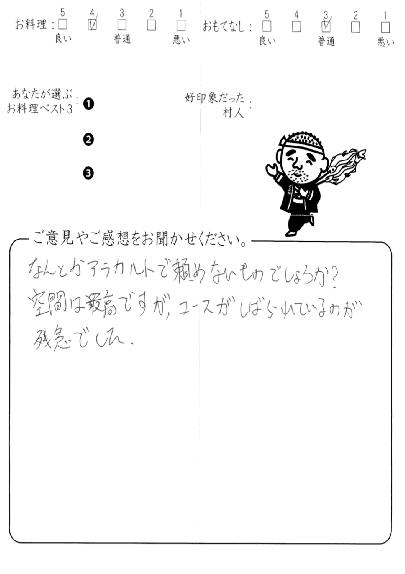 お料理: 5 4 3 2 1
良い 普通 悪い
おもてなし: 5 4 3 2 1
良い 普通 悪い
あなたが選ぶ
お料理ベスト3 :
❶
❷
❸
好印象だった
村人 :
ご意見やご感想をお聞かせください。
なんとかアラカルトで頼めないものでしょうか?
空間は最高ですが、コースがしばられているのが
残念でした.